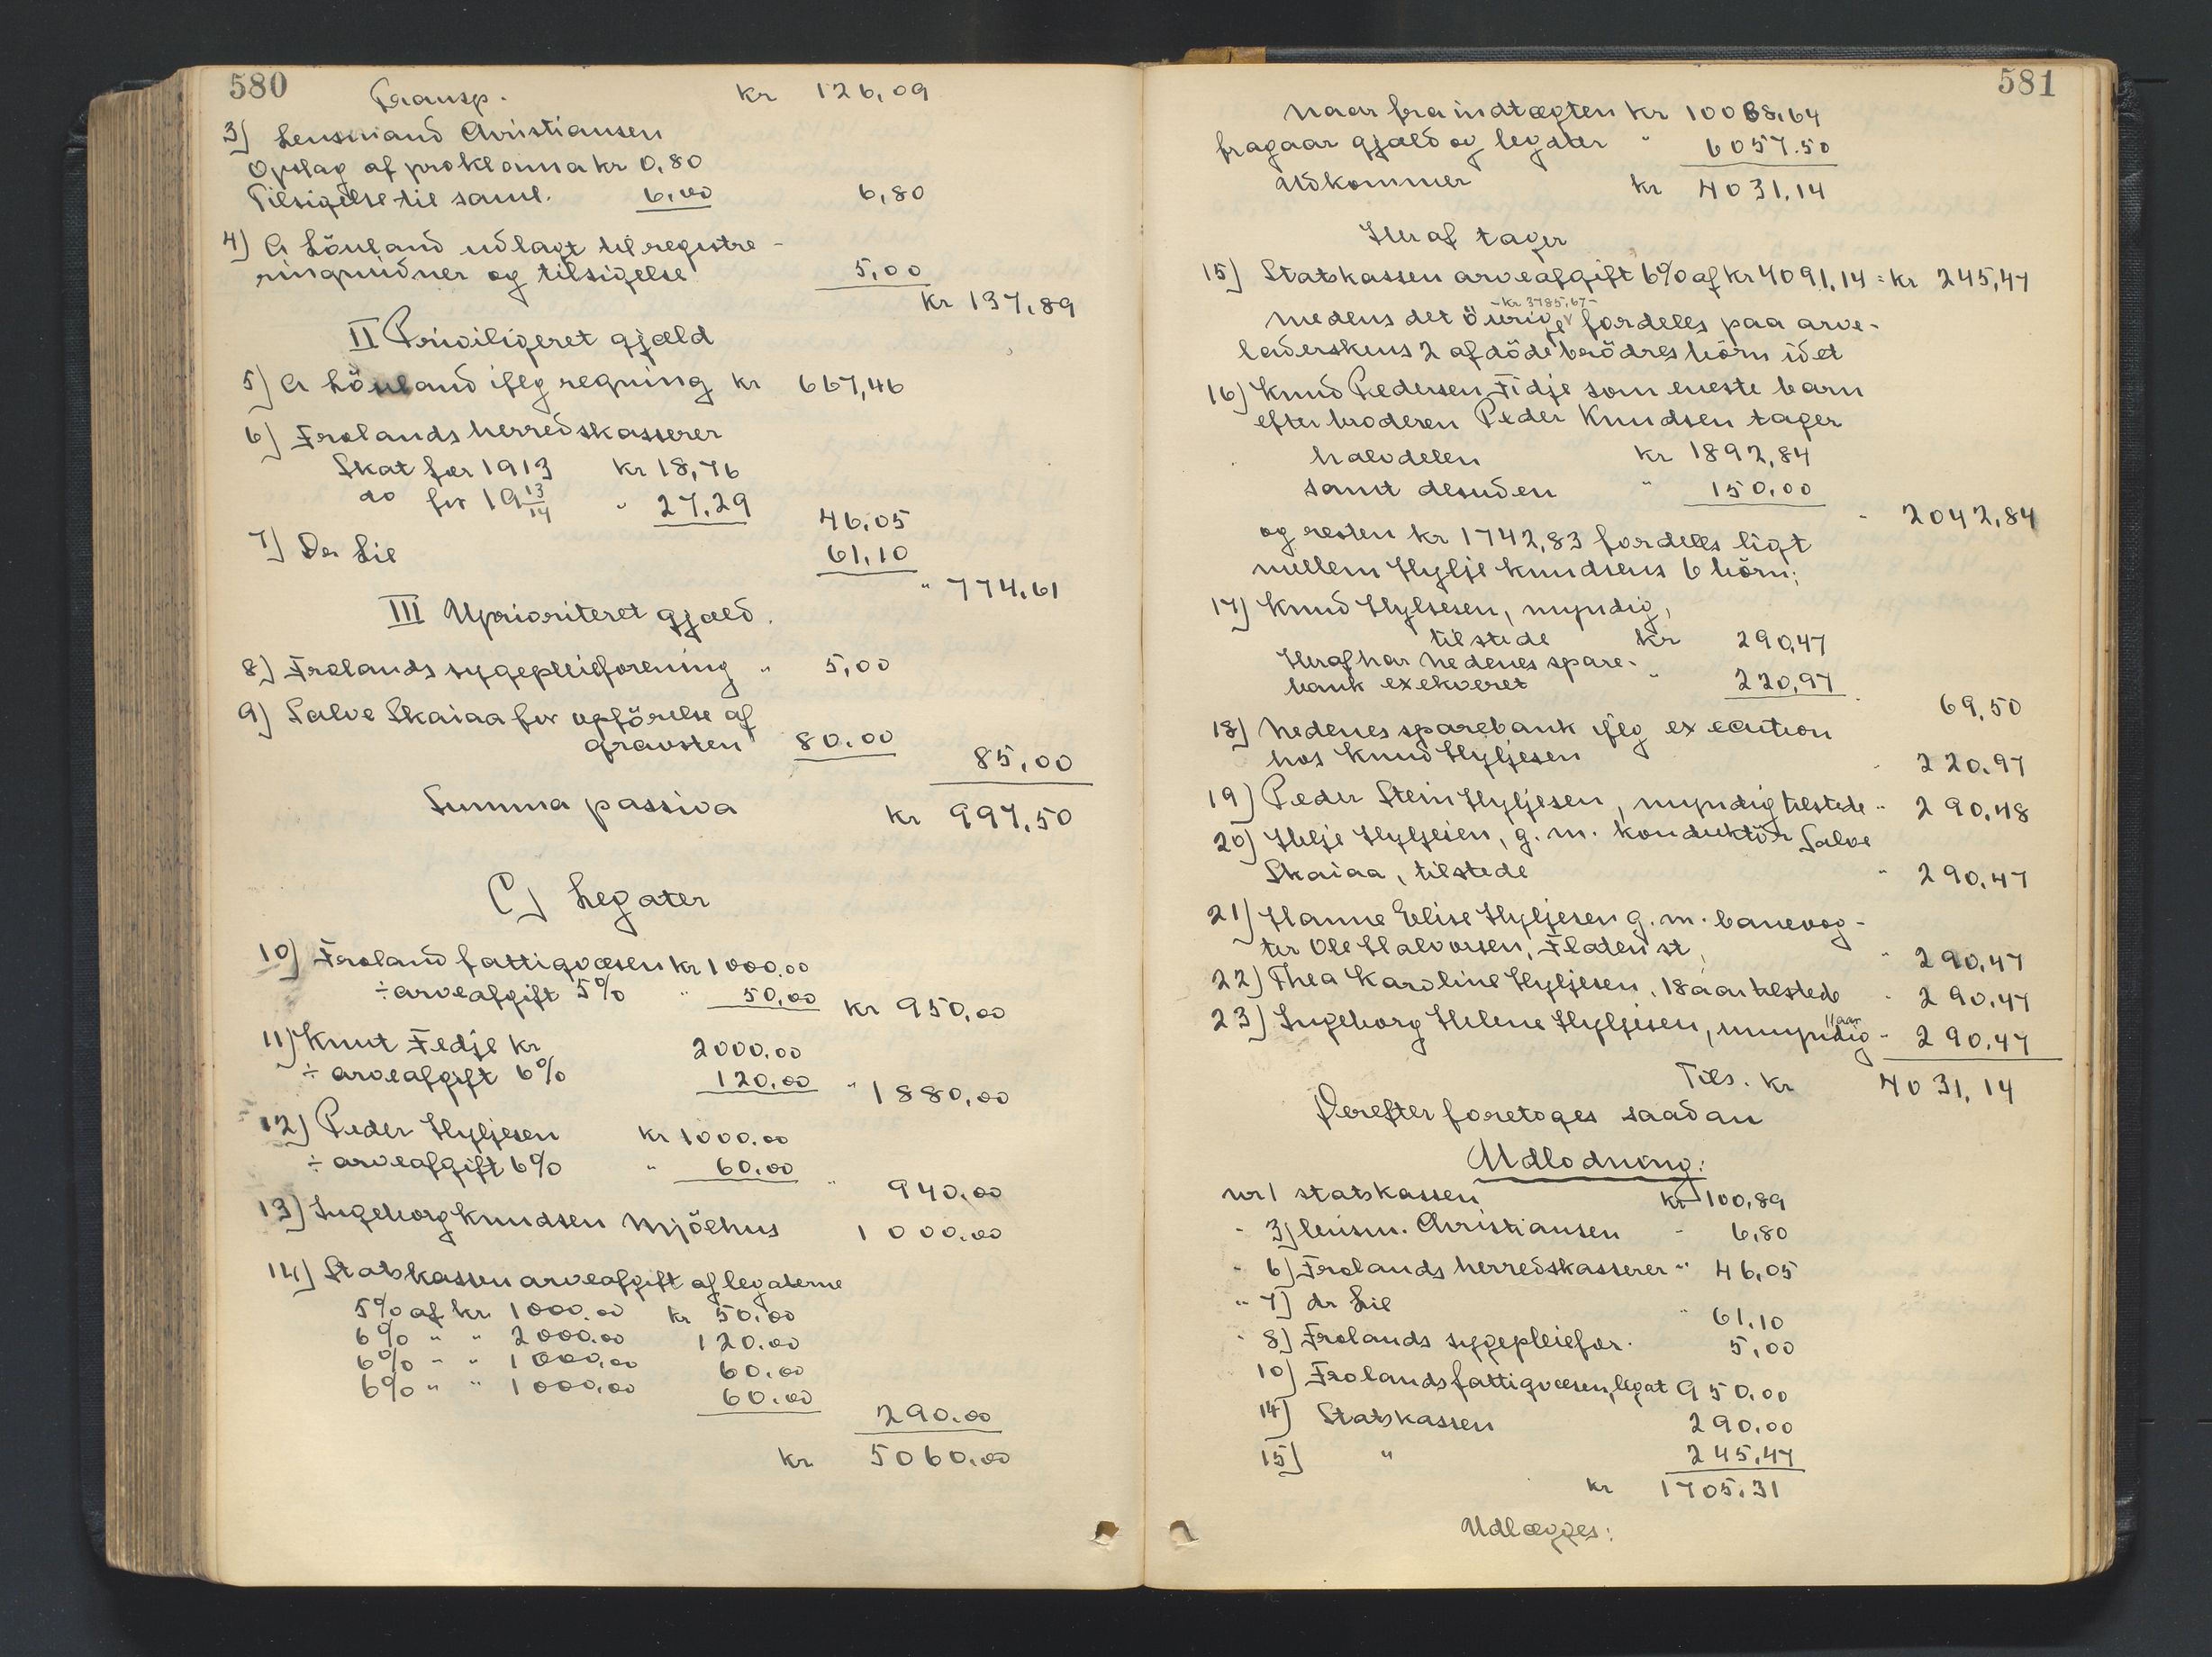 580
Transp. kr 126,09
3) Lensmand Christiansen
Opslag af proklama kr 0,80
Tilsigelse til saml. 6,00 6,80
4) A Löuland udlagt til registre-
ringsvidner og tilsigelse 5,00
kr 137,89
II Priviligeret gjæld
5) A Löuland iflg regning kr 667,46
6) Frolands herredskasserer
Skat for 1913 kr 18,76
do for 19 13/14 " 27,29
46,05
7) Dr Lie 61,10
" 774,61
III Uprioriteret gjæld.
8) Frolands sygepleieforening " 5,00
9) Salve Skaiaa for opförelse af
gravsten 80.00
85,00
Summa passiva kr 997,50
C) Legater
10) Froland fattigvæsen kr 1000.00
÷ arveafgift 5% " 50,00 kr 950,00
11) Knut Fedje kr 2000.00
÷ arveafgift 6% 120.00 " 1880,00
12) Peder Hyljesen kr 1000.00
÷ arveafgift 6% " 60.00
" 940,00
13) Ingeborg Knudsen Mjölhus 1000.00
14) Statskassen arveafgift af legaterne
5% af kr 1000.00 kr 50.00
6% " " 2000.00 120.00
6% " " 1000.00 60.00
6% " " 1000.00 60.00
290.00
kr 5060.00
581
Naar fra indtægten kr 10088,64
fragaar gjæld og legater " 6057.50
Udkommer kr 4031,14
Heraf tager
15) Statskassen arveafgift 6% af kr 4091,14 = kr 245,47
- kr 3785,67 -
medens det övrige fordeles paa arve-
laderskens 2 afdöde brödres börn idet
16) Knud Pedersen Fidje som eneste barn
efter broderen Peder Knudsen tager
halvdelen kr 1892,84
samt desuden " 150.00
" 2042,84
og resten kr 1742,83 fordeles ligt
mellem Hylje Knudsens 6 börn;
17) Knud Hyljesen, myndig,
tilstede kr 290,47
Heraf har Nedenes spare-
bank exekveret " 220,97
69,50
18) Nedenes sparebank iflg execution
hos Knud Hyljesen " 220.97
19) Peder Stein Hyljesen, myndig tilstede " 290,48
20) Helje Hyljesen, g. m. konduktör Salve
Skaiaa, tilstede " 290,47
21) Hanne Elise Hyljesen g. m. banevog-
ter Ole Halvorsen, Flaten st, " 290,47
22) Thea Karoline Hyljesen, 18 aar tilstede " 290,47
11 aar
23) Ingeborg Helene Hyljesen, umyndig - 290,47
Tils. kr 4031,14
Derefter foretoges saadan
Udlodning:
nr 1 statskassen kr 100,89
" 3) lensm. Christiansen - 6,80
" 6) Frolands herredskasserer " 46,05
" 7) dr Lie " 61.10
" 8) Frolands sygepleiefor. 5,00
10) Frolands fattigvæsen, legat 950.00
14) Statskassen 290.00
15) " 245,47
kr 1705,31
Udlægges: